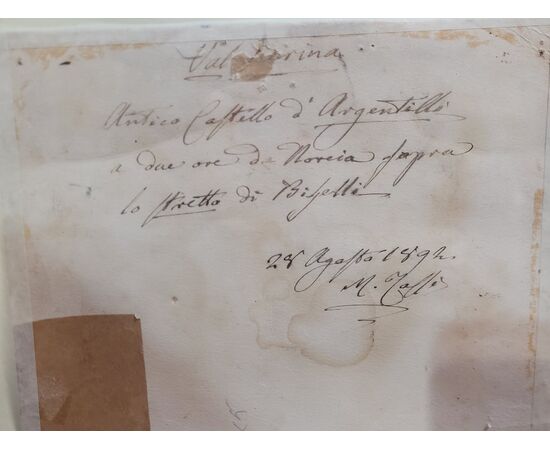 Valnerina
Antico Castello d'Argentilli
a due ore da Norcia sopra
lo stretto di Biselli
28 Agosto 1892.
M. Tassi